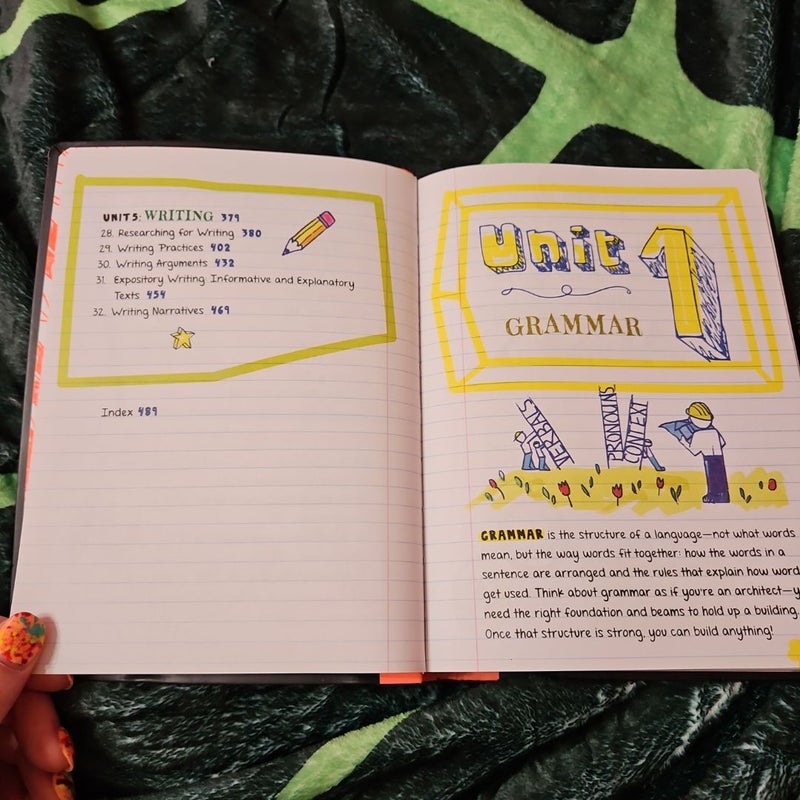 UNIT 5: WRITING 379
28. Researching for Writing 380
29. Writing Practices 402
30. Writing Arguments 432
31. Expository Writing: Informative and Explanatory
Texts 454
32. Writing Narratives 469
Index 489
Unit 1
GRAMMAR
VERBALS
PRONOUNS
CONTEXT
GRAMMAR is the structure of a language—not what words
mean, but the way words fit together: how the words in a
sentence are arranged and the rules that explain how word
get used. Think about grammar as if you're an architect—y
need the right foundation and beams to hold up a building.
Once that structure is strong, you can build anything!